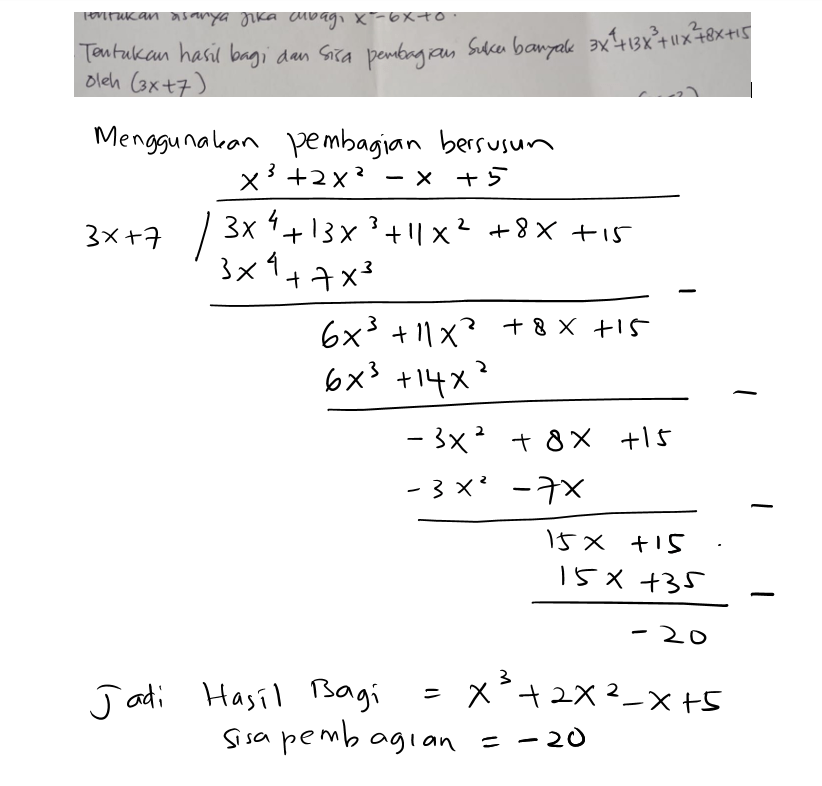 Tentukan sisanya jika dibagi x²-6x+8.
Tentukan hasil bagi dan sisa pembagian suku banyak 3x⁴+13x³+11x²+8x+15
oleh (3x+7)
Menggunakan pembagian bersusun
x³ +2x² - x +5
3x+7 / 3x⁴+13x³+11x² +8x +15
3x⁴+7x³
-
6x³ +11x² +8x +15
6x³ +14x²
-
-3x² + 8x +15
-3x² -7x
-
15x +15
15x +35
-
-20
Jadi Hasil Bagi = x³+2x²-x+5
sisa pembagian = -20